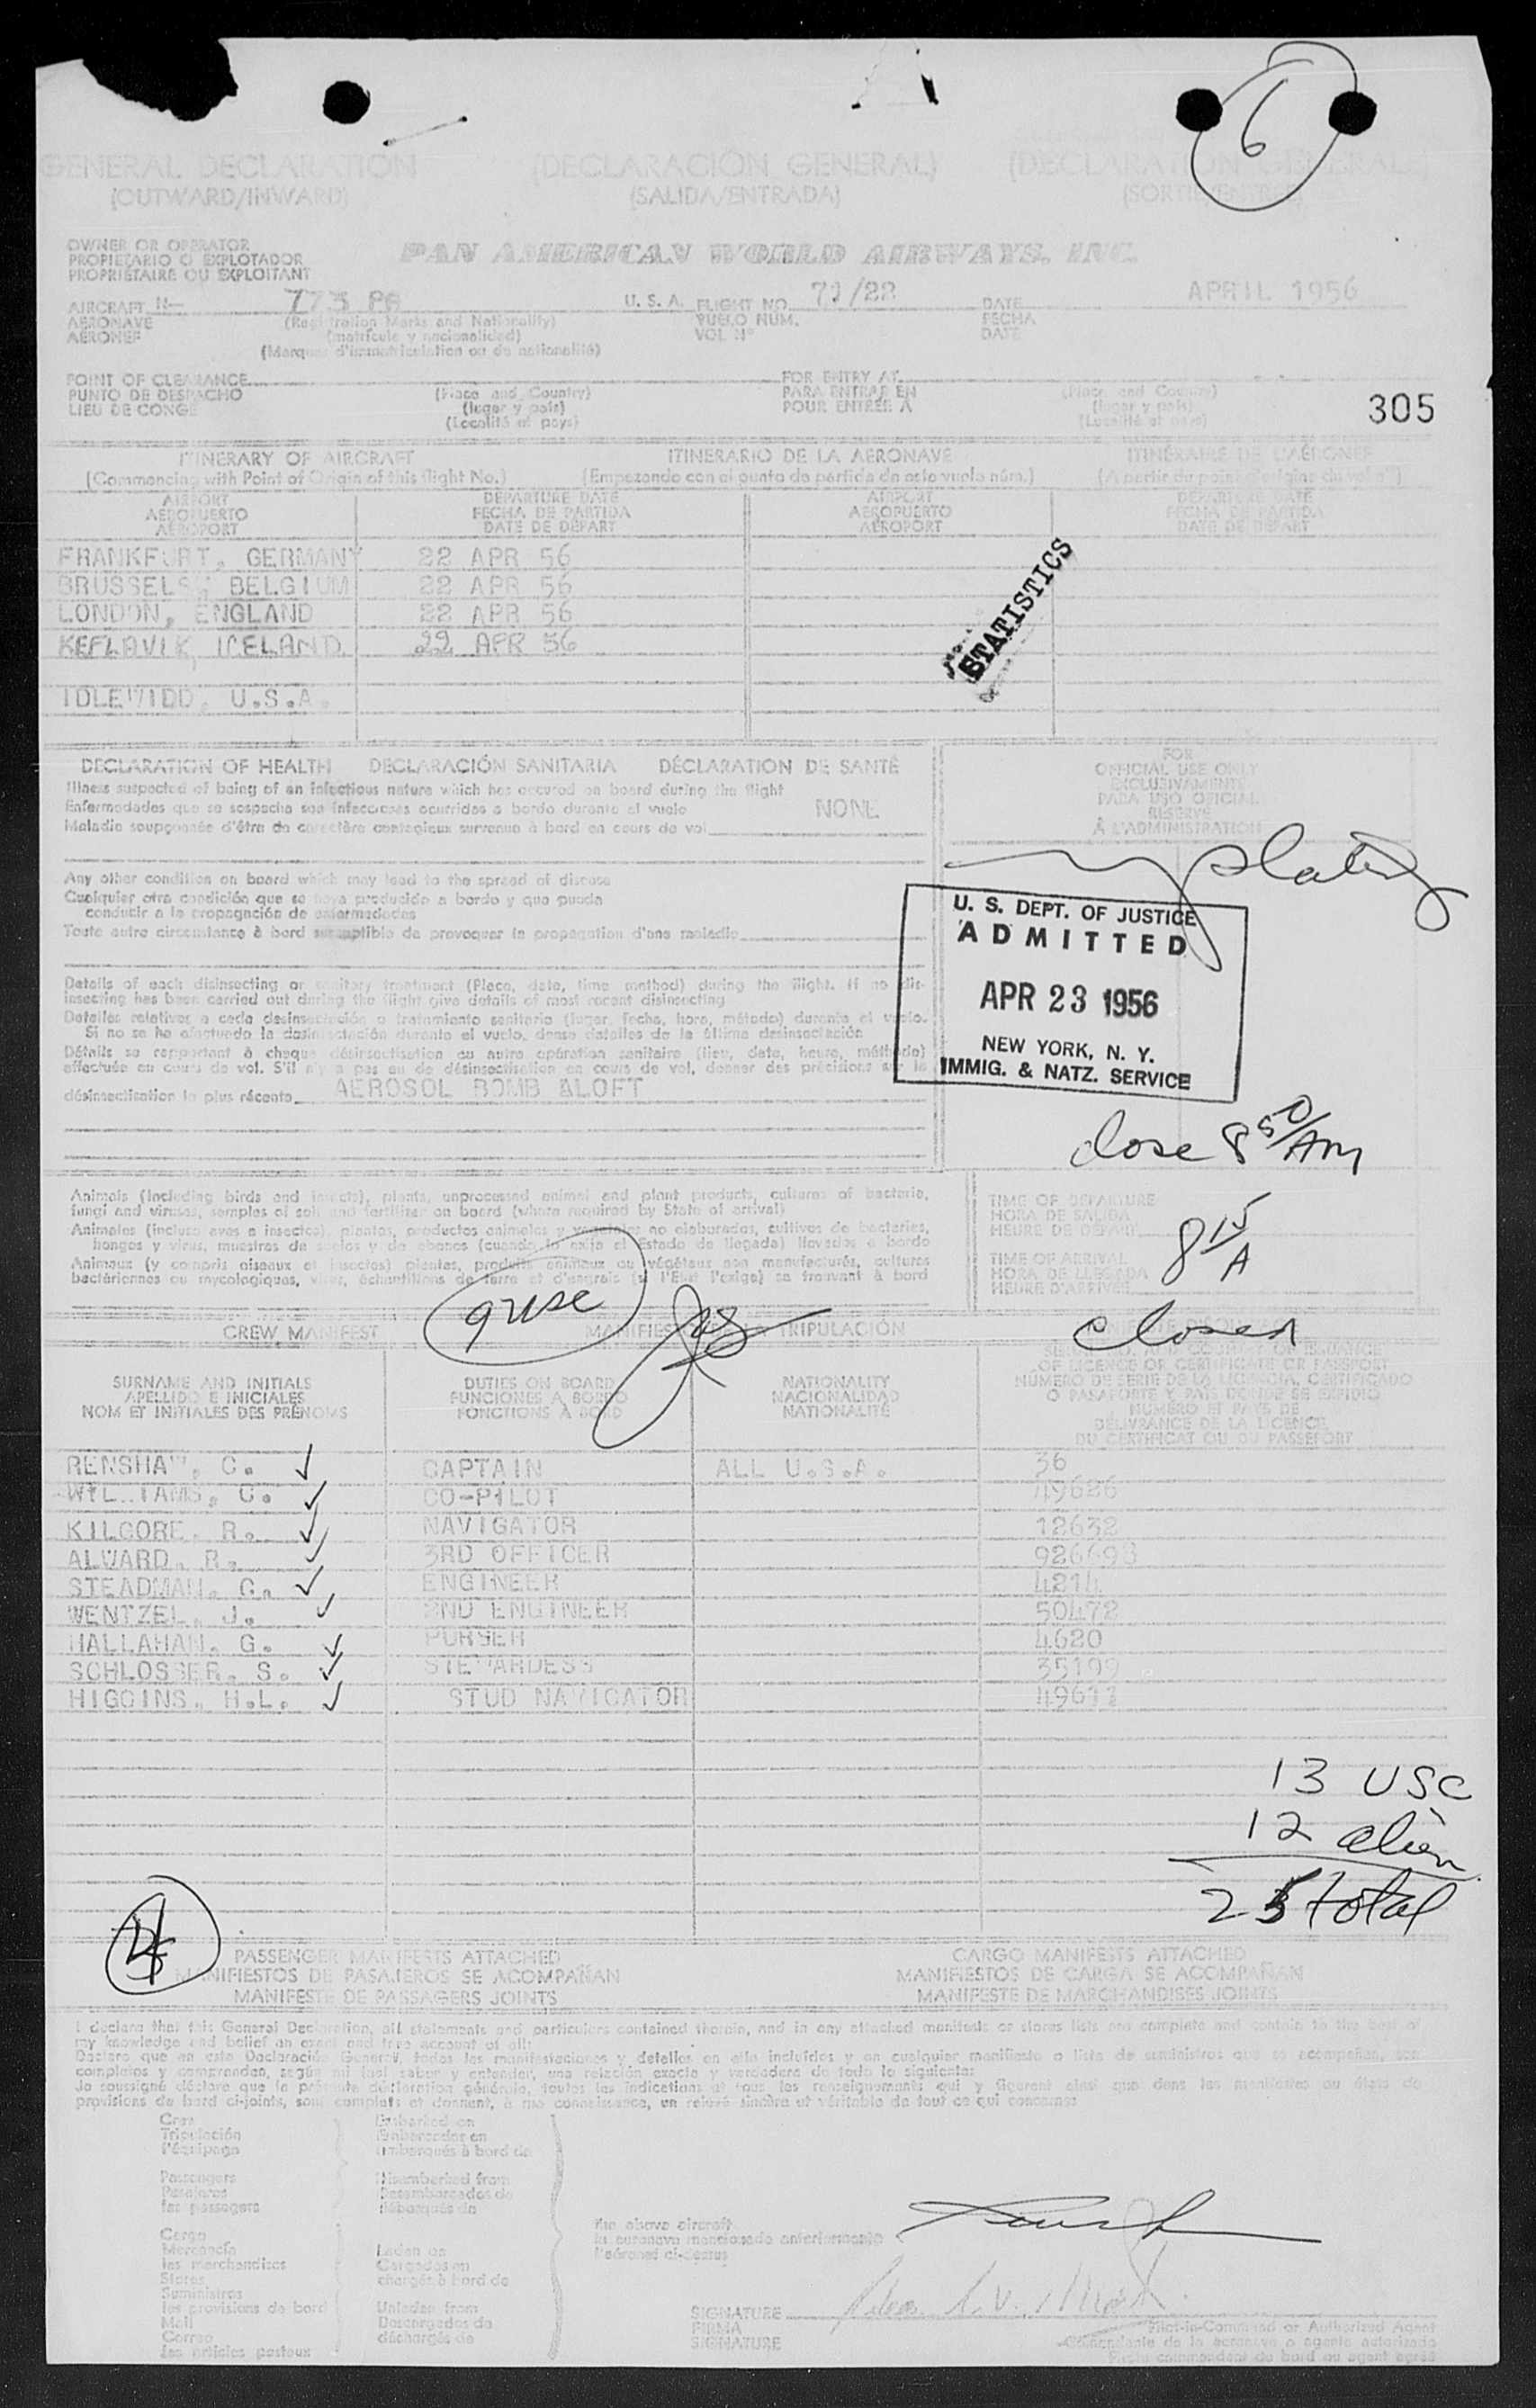 6
GENERAL DECLARATION (DECLARACIÓN GENERAL) (DECLARATION GENERALE)
(OUTWARD/INWARD) (SALIDA/ENTRADA)
OWNER OR OPERATOR
PROPIETARIO O EXPLOTADOR
PROPRIÉTAIRE OU EXPLOITANT
PAN AMERICAN WORLD AIRWAYS, INC.
AIRCRAFT N— U. S. A. FLIGHT NO. 71/22 DATE APRIL 1956
AERONAVE (Registration Marks and Nationality) VUELO NUM. FECHA
AÉRONEF (matrícula y nacionalidad) VOL Nº DATE
(Marques d'immatriculation ou de nationalité)
POINT OF CLEARANCE FOR ENTRY AT
PUNTO DE DESPACHO (Place and Country) PARA ENTRAR EN (Place and Country)
LIEU DE CONGE (lugar y país) POUR ENTRÉE A (lugar y país)
(Localité et pays) (Localité et pays)
305
ITINERARY OF AIRCRAFT ITINERARIO DE LA AERONAVE ITINÉRAIRE DE L'AÉRONEF
(Commencing with Point of Origin of this flight No.) (Empezando con el punto de partida de este vuelo núm.) (A partir du point d'origine du vol n°)
AIRPORT DEPARTURE DATE AIRPORT DEPARTURE DATE
AEROPUERTO FECHA DE PARTIDA AEROPUERTO FECHA DE PARTIDA
AÉROPORT DATE DE DÉPART AÉROPORT DATE DE DÉPART
FRANKFURT, GERMANY 22 APR 56
BRUSSELS, BELGIUM 22 APR 56
LONDON, ENGLAND 22 APR 56
KEFLAVIK, ICELAND 22 APR 56
IDLEWIDD, U.S.A.
STATISTICS
DECLARATION OF HEALTH DECLARACIÓN SANITARIA DÉCLARATION DE SANTÉ
Illness suspected of being of an infectious nature which has occured on board during the flight
Enfermedades que se sospecha son infecciosas ocurridas a bordo durante el vuelo NONE
Maladie soupçonnée d'être de caractère contagieux survenue à bord en cours de vol
FOR
OFFICIAL USE ONLY
EXCLUSIVAMENTE
PARA USO OFICIAL
RESERVE
À L'ADMINISTRATION
Any other condition on board which may lead to the spread of disease
Cualquier otra condición que se haya producido a bordo y que pueda
conducir a la propagación de enfermedades
Toute autre circonstance à bord susceptible de provoquer la propagation d'une maladie
U. S. DEPT. OF JUSTICE
ADMITTED
APR 23 1956
NEW YORK, N. Y.
IMMIG. & NATZ. SERVICE
Details of each disinsecting or sanitary treatment (Place, date, time method) during the flight. If no dis-
insecting has been carried out during the flight give details of most recent disinsecting
Detalles relativos a cada desinsectación o tratamiento sanitario (lugar, fecha, hora, método) durante el vuelo.
Si no se ha efectuado la desinsectación durante el vuelo, dense detalles de la última desinsectación
Détails se rapportant à chaque désinsectisation ou autre opération sanitaire (lieu, date, heure, méthode)
effectuée au cours de vol. S'il n'y a pas eu de désinsectisation en cours de vol, donner des précisions sur la
désinsectisation la plus récente AEROSOL BOMB ALOFT
close 8 50/AM
Animals (including birds and insects), plants, unprocessed animal and plant products, cultures of bacteria,
fungi and viruses, samples of soil and fertilizer on board (where required by State of arrival)
Animales (incluso aves e insectos), plantas, productos animales y vegetales no elaborados, cultivos de bacterias,
hongos y virus, muestras de suelos y de abonos (cuando lo exija el Estado de llegada) llevados a bordo
Animaux (y compris oiseaux et insectes) plantes, produits animaux ou végétaux non manufacturés, cultures
bactériennes ou mycologiques, virus, échantillons de terre et d'engrais (si l'Etat l'exige) se trouvant à bord
TIME OF DEPARTURE
HORA DE SALIDA
HEURE DE DEPART
TIME OF ARRIVAL
HORA DE LLEGADA
HEURE D'ARRIVEE
8 15/A
9 USC
closed
CREW MANIFEST MANIFIESTO DE TRIPULACIÓN
SURNAME AND INITIALS DUTIES ON BOARD NATIONALITY
APELLIDO E INICIALES FUNCIONES A BORDO NACIONALIDAD
NOM ET INITIALES DES PRÉNOMS FONCTIONS À BORD NATIONALITÉ
OF LICENCE OR CERTIFICATE OR PASSPORT
NUMERO DE SERIE DE LA LICENCIA, CERTIFICADO
O PASAPORTE Y PAIS DONDE SE EXPIDIO
NUMÉRO ET PAYS DE
DÉLIVRANCE DE LA LICENCE
DU CERTIFICAT OU DU PASSEPORT
RENSHAW, C. CAPTAIN ALL U.S.A. 36
WILLIAMS, C. CO-PILOT 49686
KILGORE, R. NAVIGATOR 12632
ALWARD, R. 3RD OFFICER 926698
STEADMAN, C. ENGINEER 4214
WENTZEL, J. 2ND ENGINEER 50472
HALLAHAN, G. PURSER 4620
SCHLOSSER, S. STEWARDESS 35199
HIGGINS, H.L. STUD NAVIGATOR
13 USC
12 alien
25 total
PASSENGER MANIFESTS ATTACHED CARGO MANIFESTS ATTACHED
MANIFIESTOS DE PASAJEROS SE ACOMPAÑAN MANIFIESTOS DE CARGA SE ACOMPAÑAN
MANIFESTE DE PASSAGERS JOINTS MANIFESTE DE MARCHANDISES JOINTS
I declare that this General Declaration, all statements and particulars contained therein, and in any attached manifests or stores lists are complete and contain to the best of
my knowledge and belief an exact and true account of all:
Declaro que en esta Declaración General, todas las manifestaciones y detalles en ella incluidos y en cualquier manifiesto o lista de suministros que se acompañan, son
completos y comprenden, según mi leal saber y entender, una relación exacta y verdadera de todo lo siguiente:
Je soussigné déclare que la présente déclaration générale, toutes les indications et tous les renseignements qui y figurent ainsi que dans les manifestes ou états de
provisions de bord ci-joints, sont complets et donnent, à ma connaissance, un relevé sincère et véritable de tout ce qui concerne:
Crew Embarked on
Tripulación Embarcados en
l'équipage embarqués à bord de
Passengers Disembarked from
Pasajeros Desembarcados de
les passagers débarqués de
Cargo
Mercancía Laden on
les marchandises Cargados en
Stores chargés à bord de
Suministros
les provisions de bord Unladen from
Mail Descargados de
Correo déchargés de
les articles postaux
the above aircraft
la aeronave mencionada anteriormente
l'aéronef ci-dessus
SIGNATURE
FIRMA
SIGNATURE
Pilot-in-Command or Authorized Agent
Comandante de la aeronave o agente autorizado
Pilote commandant de bord ou agent agréé